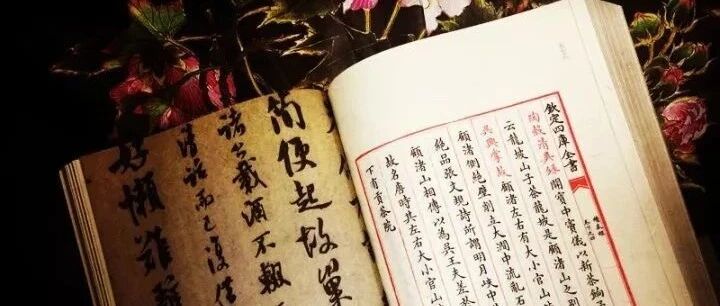 欽定四庫全書
陶穀清異錄開寳中竇儀以新茶飲
云龍坡山子茶龍坡是顧渚山之
吳興掌故顧渚左右有大小官
顧渚側絶壁創立大澗中流亂石
絶品張文規詩所謂明月峽中
顧渚山相傳以為吳王夫差
故名唐時其左右大小官山
下有貢茶院
簡便起故
諸公載酒不
清話而已復
好懶雖